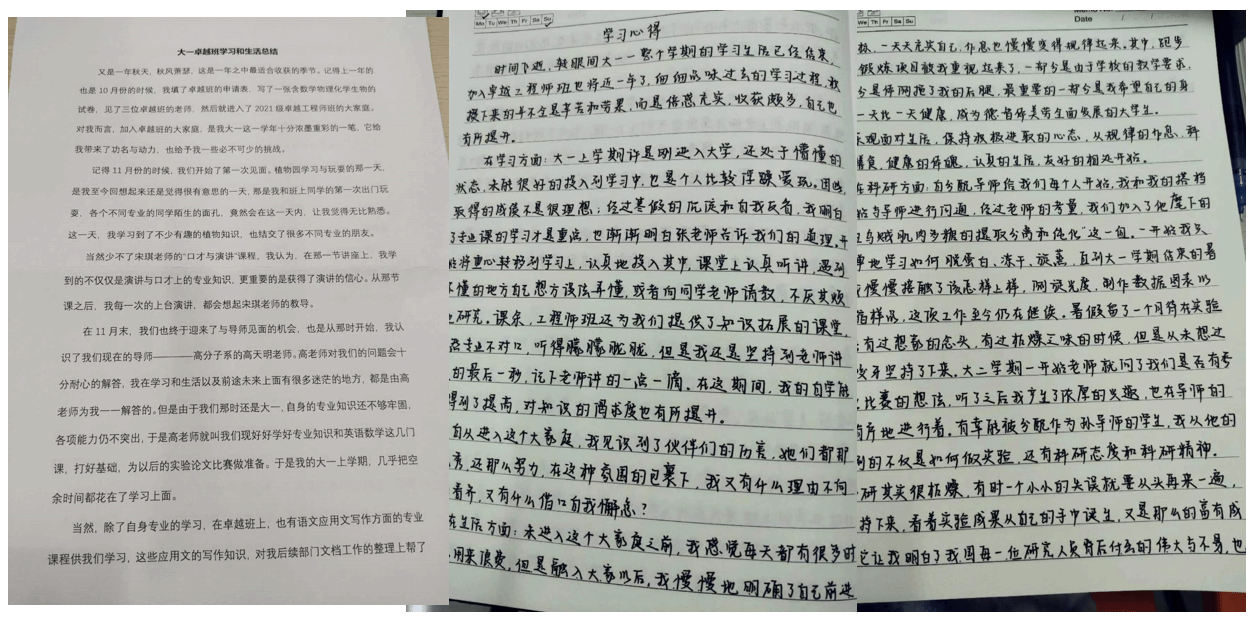 大一卓越班学习和生活总结
又是一年秋天，秋风萧瑟，这是一年之中最适合收获的季节。记得上一年的
也是 10 月份的时候，我填了卓越班的申请表，写了一张含数学物理化学生物的
试卷，见了三位卓越班的老师，然后就进入了 2021 级卓越工程师班的大家庭。
对我而言，加入卓越班的大家庭，是我大一这一学年十分浓墨重彩的一笔，它给
我带来了功名与动力，也给予我一些必不可少的挑战。
记得 11 月份的时候，我们开始了第一次见面。植物园学习与玩耍的那一天，
是我至今回想起来还是觉得很有意思的一天，那是我和班上同学的第一次出门玩
耍，各个不同专业的同学陌生的面孔，竟然会在这一天内，让我觉得无比熟悉。
这一天，我学习到了不少有趣的植物知识，也结交了很多不同专业的朋友。
当然少不了宋琪老师的“口才与演讲”课程，我认为，在那一节讲座上，我学
到的不仅仅是演讲与口才上的专业知识，更重要的是获得了演讲的信心。从那节
课之后，我每一次的上台演讲，都会想起宋琪老师的教导。
在 11 月末，我们也终于迎来了与导师见面的机会，也是从那时开始，我认
识了我们现在的导师————高分子系的高天明老师。高老师对我们的问题会十
分耐心的解答，我在学习和生活以及前途未来上面有很多迷茫的地方，都是由高
老师为我一一解答的。但是由于我们那时还是大一，自身的专业知识还不够牢固，
各项能力仍不突出，于是高老师就叫我们现好好学好专业知识和英语数学这几门
课，打好基础，为以后的实验论文比赛做准备。于是我的大一上学期，几乎把空
余时间都花在了学习上面。
当然，除了自身专业的学习，在卓越班上，也有语文应用文写作方面的专业
课程供我们学习，这些应用文的写作知识，对我后续部门文档工作的整理上帮了
Mo Tu We Th Fr Sa Su
学习心得
时间飞逝，转眼间大一一整个学期的学习生活已经结束，
加入卓越工程师班也将近一年了，细细品味过去的学习过程，被
摸下来的并不全是辛苦和劳累，而是倍感充实，收获颇多，自己也
有所提升。
在学习方面：大一上学期许是刚进入大学，还处于懵懂的
状态，未能很好的投入到学习中，也是个人比较浮躁爱玩。因此，
取得的成绩不是很理想；经过寒假的沉淀和自我反省，我明白
了专业课的学习才是重点，也渐渐明白张老师告诉我们的道理。开
始将重心转移到学习上，认真地投入其中，课堂上认真听讲，遇到
不懂的地方自己想方设法弄懂，或者向同学老师请教，不厌其烦
地研究。课余，工程师班还为我们提供了知识拓展的课堂，
专业不对口，听得朦朦胧胧，但是我还是坚持到老师讲
的最后一秒，记下老师讲的一点一滴。在这期间，我的自学能
得到了提高，对知识的渴求度也有所提升。
自从进入这个大家庭，我见识到了伙伴们的优秀，她们都那
秀，还那么努力，在这种氛围的包裹下，我又有什么理由不向
看齐，又有什么借口自我懈怠？
在生活方面：未进入这个大家庭之前，我感觉每天都有很多时
用来浪费，但是融入大家以后，我慢慢地明确了自己前进
We Th Fr Sa Su
Memo No.
Date / /
标，一天天充实自己，作息也慢慢变得规律起来。其中，跑步
锻炼项目被我重视起来了，一部分是由于学校的教学要求，
分是体测拖了我的后腿，最重要的一部分是我希望自己的身
一天比一天健康，成为德智体美劳全面发展的大学生。
乐观面对生活，保持积极进取的心态，从规律的作息、科
膳食，健康的体魄，认真的生活，友好的相处开始。
在科研方面：自分配导师给我们每个人开始，我和我的搭档
始与导师进行沟通，经过老师的考量，我们加入了他麾下的
乌贼肌肉多糖的提取分离和纯化”这一组。一开始我只
单地学习如何脱蛋白、冻干、旋蒸，直到大一学期结束的暑
慢慢接触了该怎样上样，测吸光度，制作数据图表以
样品，这项工作至今仍在继续。暑假留了一个月待在实验
有过想家的念头，有过枯燥乏味的时候，但是从未想过
坚持了下来。大二学期一开始老师就问了我们是否有参
比赛的想法，听了之后我产生了浓厚的兴趣，也在导师的
有序地进行着。有幸能被分配作为孙导师的学生，我从他的
到的不仅是如何做实验，还有科研态度和科研精神。
研其实很枯燥，有时一个小小的失误就要从头再来一遍，
持下来，看着实验成果从自己的手中诞生，又是那么的富有成
它让我明白了我国每一位研究人员背后付出的伟大与不易，也